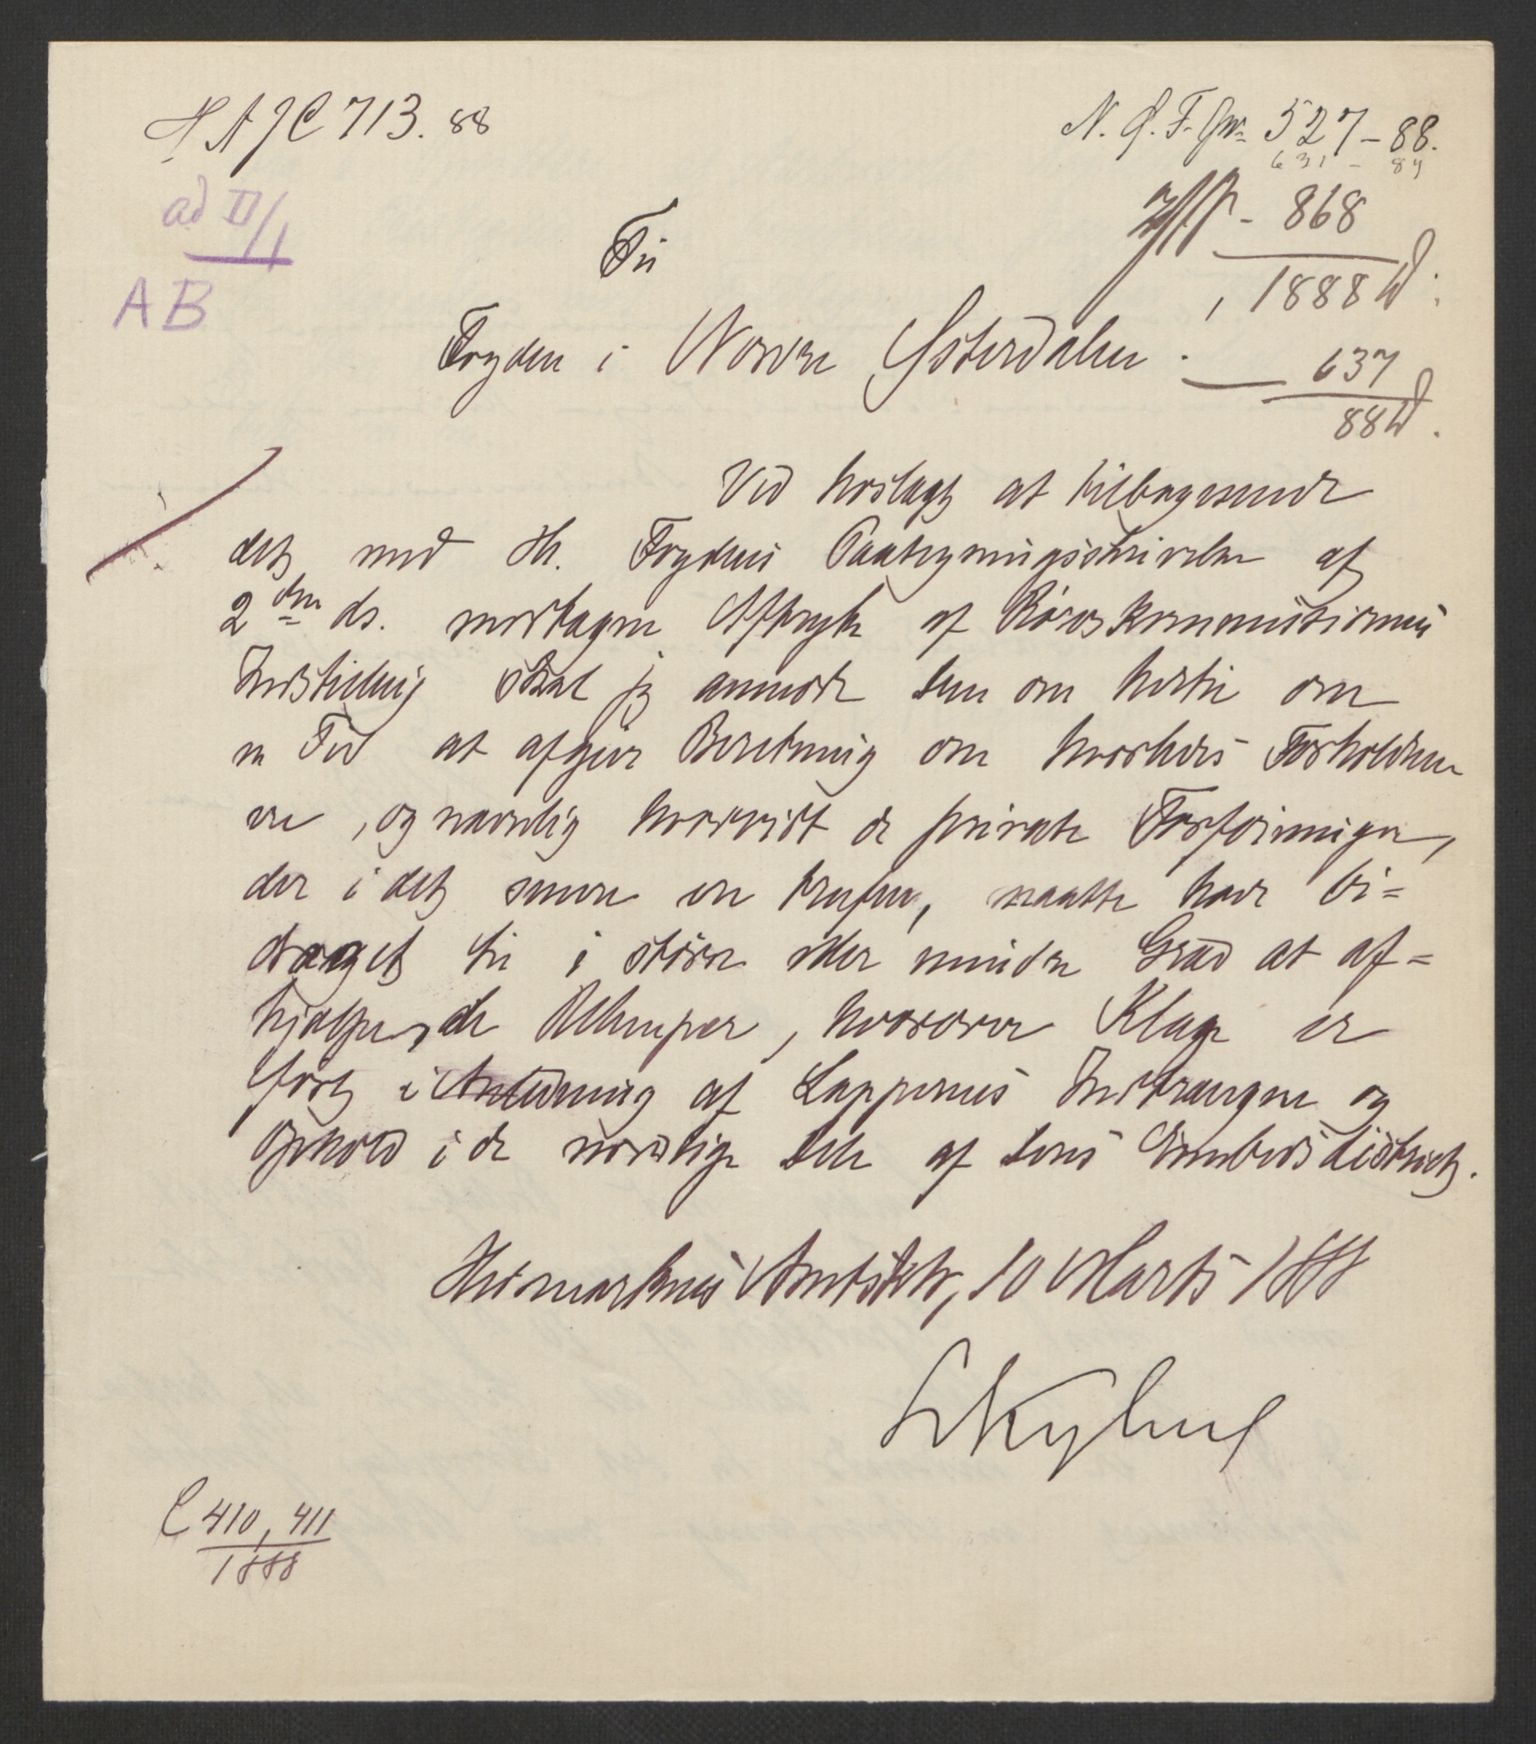 H A J C 713. 88
N. Ø. F. Jnr. 527 - 88.
631 - 89
ad II/1
868
AB
1888
Til
Fogden i Nordre Østerdalen.
637
88
Ved hoslagt at tilbagesende
det med Hr. Fogdens Paategningsskrivelse af
2den ds. modtagne Aftryk af Røroskommissionens
Indstilling skal jeg anmode Dem om hertil om
en Tid at afgive Beretning om hvorledes Forholdene
ere, og navnlig hvorvidt de private Forføininger,
der i det senere ere trufne, maatte have bi=
draget til i større eller mindre Grad at af=
hjælpe de Ulemper, hvorover Klage er
ført i Anledning af Lappernes Indtrængen og
Ophold i de nordlige Dele af Deres Embedsdistrict.
Hedmarkens Amtsktr, 10 Marts 1888
C 410, 411
1888